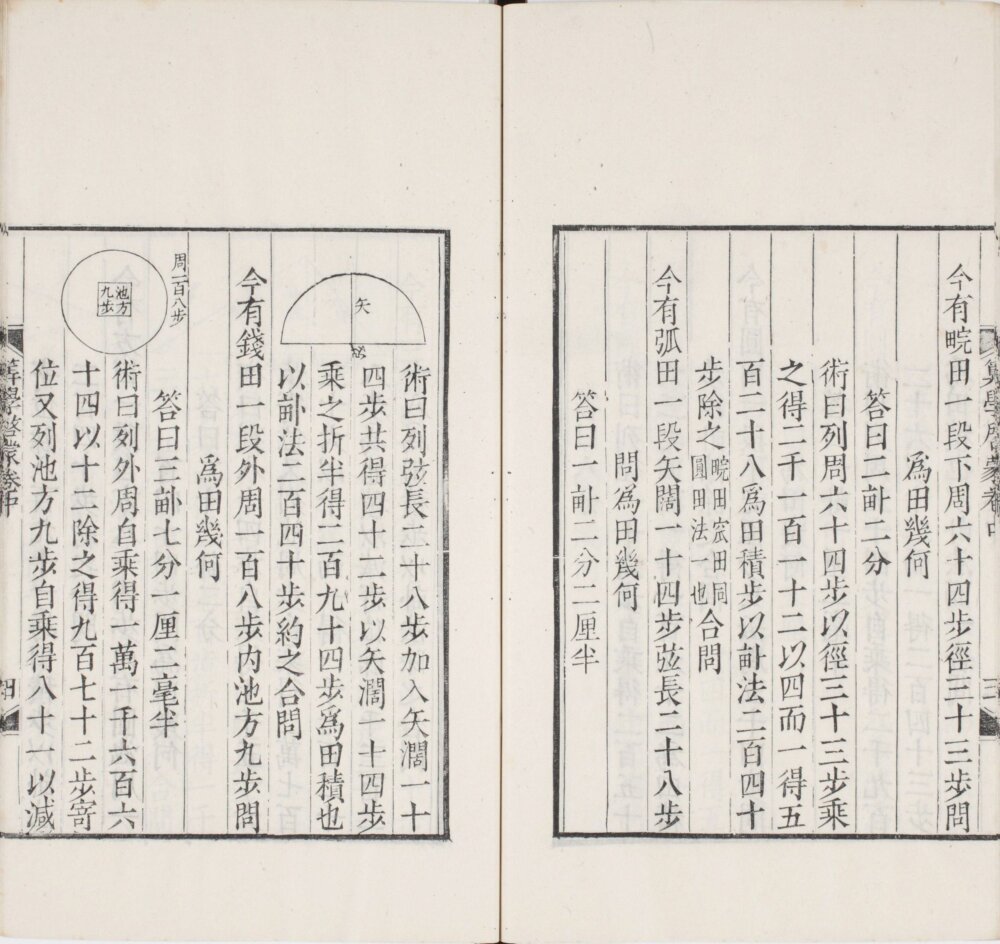 今有畹田一段下周六十四步徑三十三步問
爲田幾何
答曰二畝二分
術曰列周六十四步以徑三十三步乘
之得二千一百一十二以四而一得五
百二十八爲田積步以畝法二百四十
步除之畹田宖田同圓田法一也合問
今有弧田一段矢闊一十四步弦長二十八步
問爲田幾何
答曰一畝二分二厘半
矢
弦
術曰列弦長二十八步加入矢濶一十
四步共得四十二步以矢濶一十四步
乘之折半得二百九十四步爲田積也
以畝法二百四十步約之合問
今有錢田一段外周一百八步内池方九步問
爲田幾何
答曰三畝七分一厘二毫半
周一百八步
池方九步
術曰列外周自乘得一萬一千六百六
十四以十二除之得九百七十二步寄
位又列池方九步自乘得八十一以減
算學啓蒙卷中